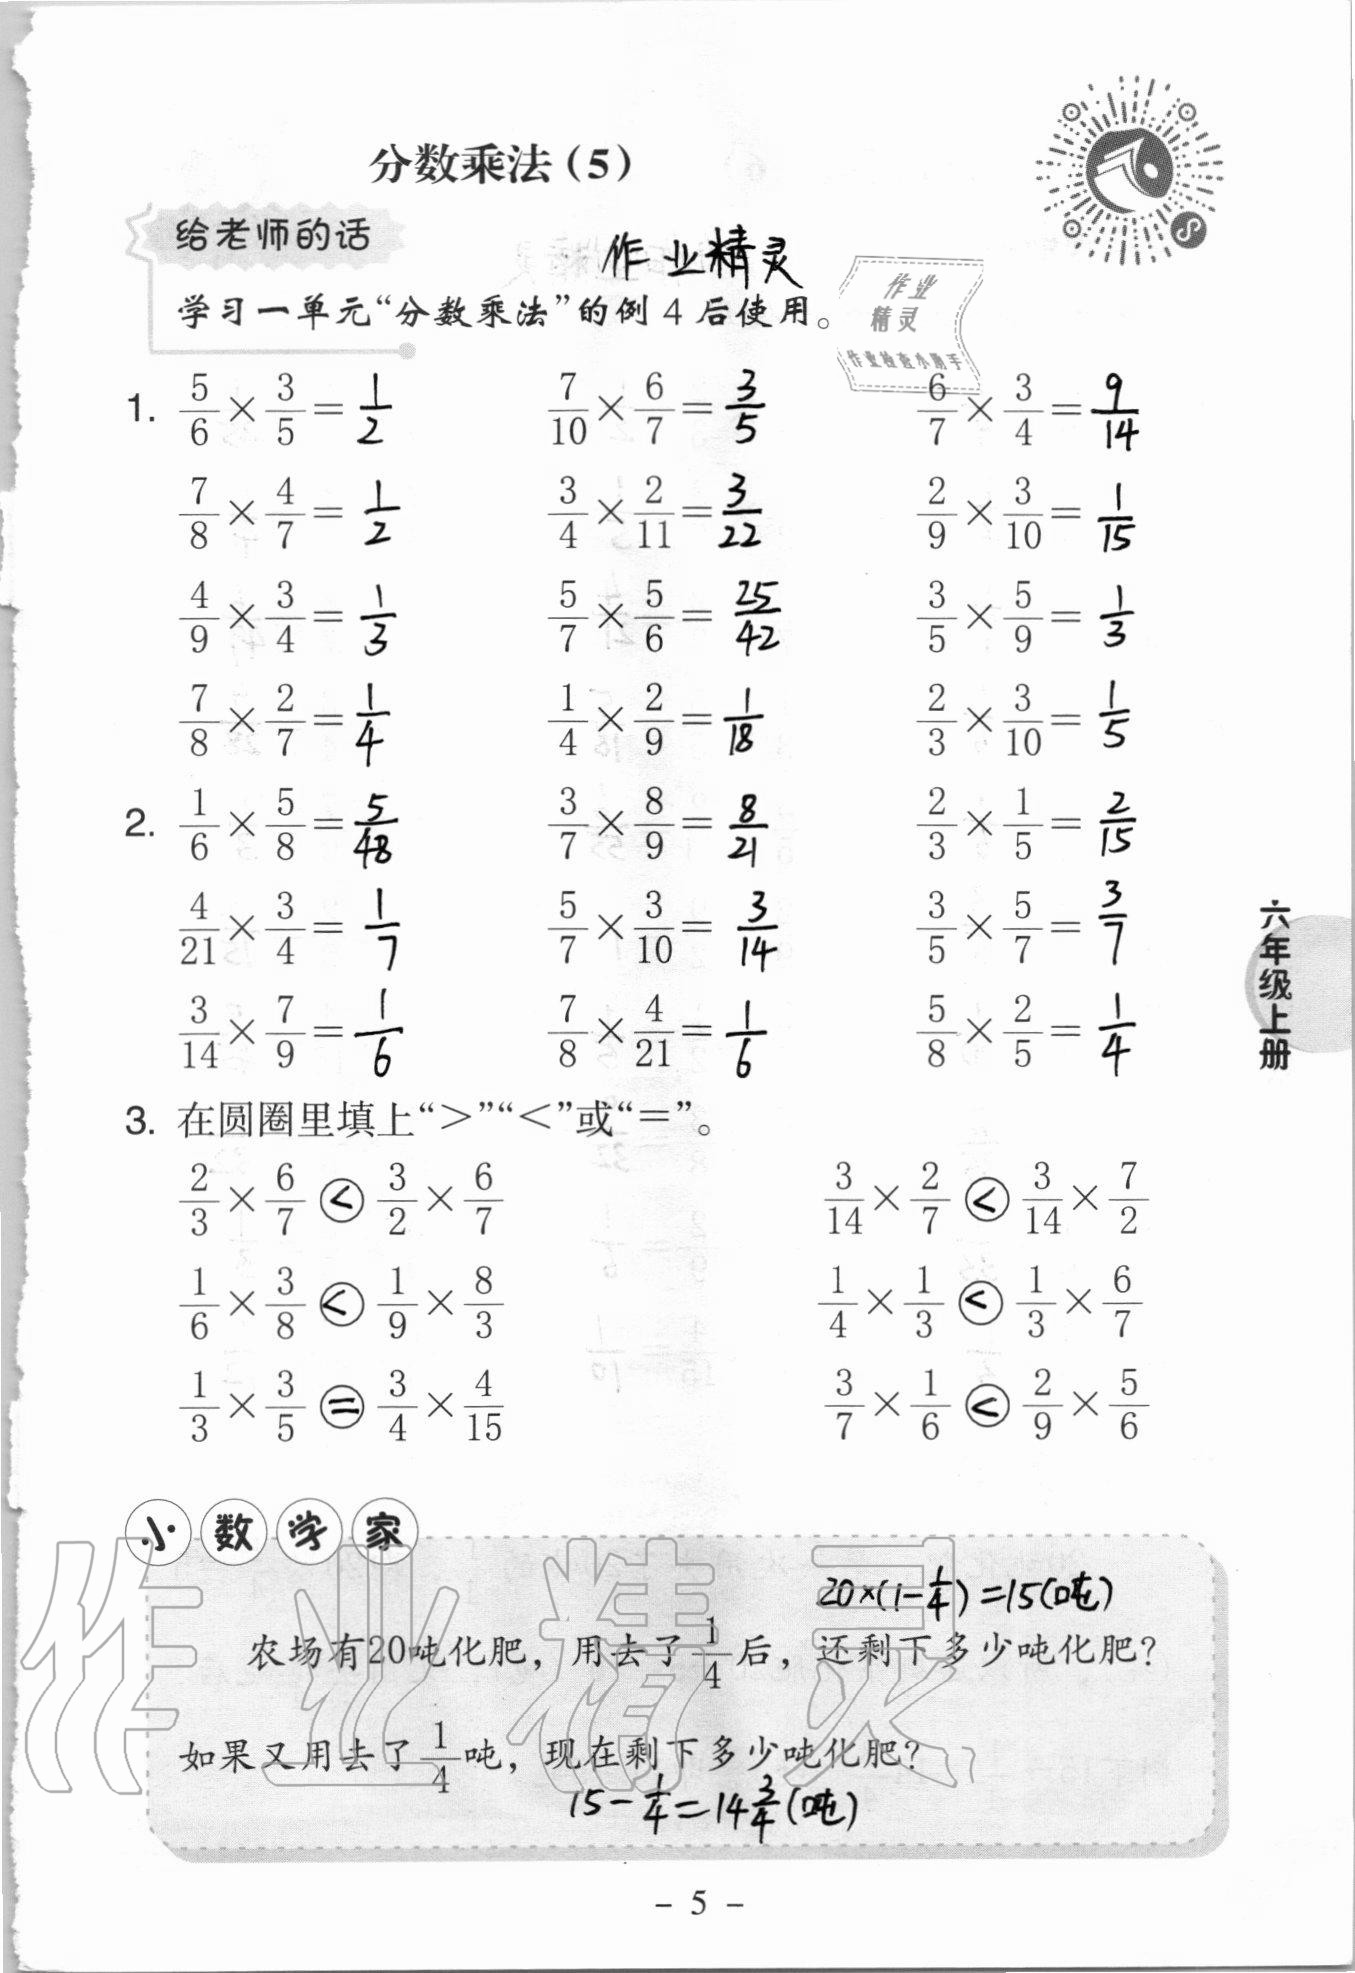 分数乘法(5)
给老师的话
作业精灵
学习一单元“分数乘法”的例 4 后使用。
作业
精灵
作业检查小助手
1. 5/6×3/5=1/2 7/10×6/7=3/5 6/7×3/4=9/14
7/8×4/7=1/2 3/4×2/11=3/22 2/9×3/10=1/15
4/9×3/4=1/3 5/7×5/6=25/42 3/5×5/9=1/3
7/8×2/7=1/4 1/4×2/9=1/18 2/3×3/10=1/5
2. 1/6×5/8=5/48 3/7×8/9=8/21 2/3×1/5=2/15
4/21×3/4=1/7 5/7×3/10=3/14 3/5×5/7=3/7
3/14×7/9=1/6 7/8×4/21=1/6 5/8×2/5=1/4
六年级上册
3. 在圆圈里填上“＞”“＜”或“＝”。
2/3×6/7<3/2×6/7 3/14×2/7<3/14×7/2
1/6×3/8<1/9×8/3 1/4×1/3<1/3×6/7
1/3×3/5=3/4×4/15 3/7×1/6<2/9×5/6
小数学家
20×(1-1/4)=15(吨)
农场有20吨化肥，用去了1/4后，还剩下多少吨化肥？
如果又用去了1/4吨，现在剩下多少吨化肥？
15-1/4=14 3/4(吨)
作业精灵
- 5 -